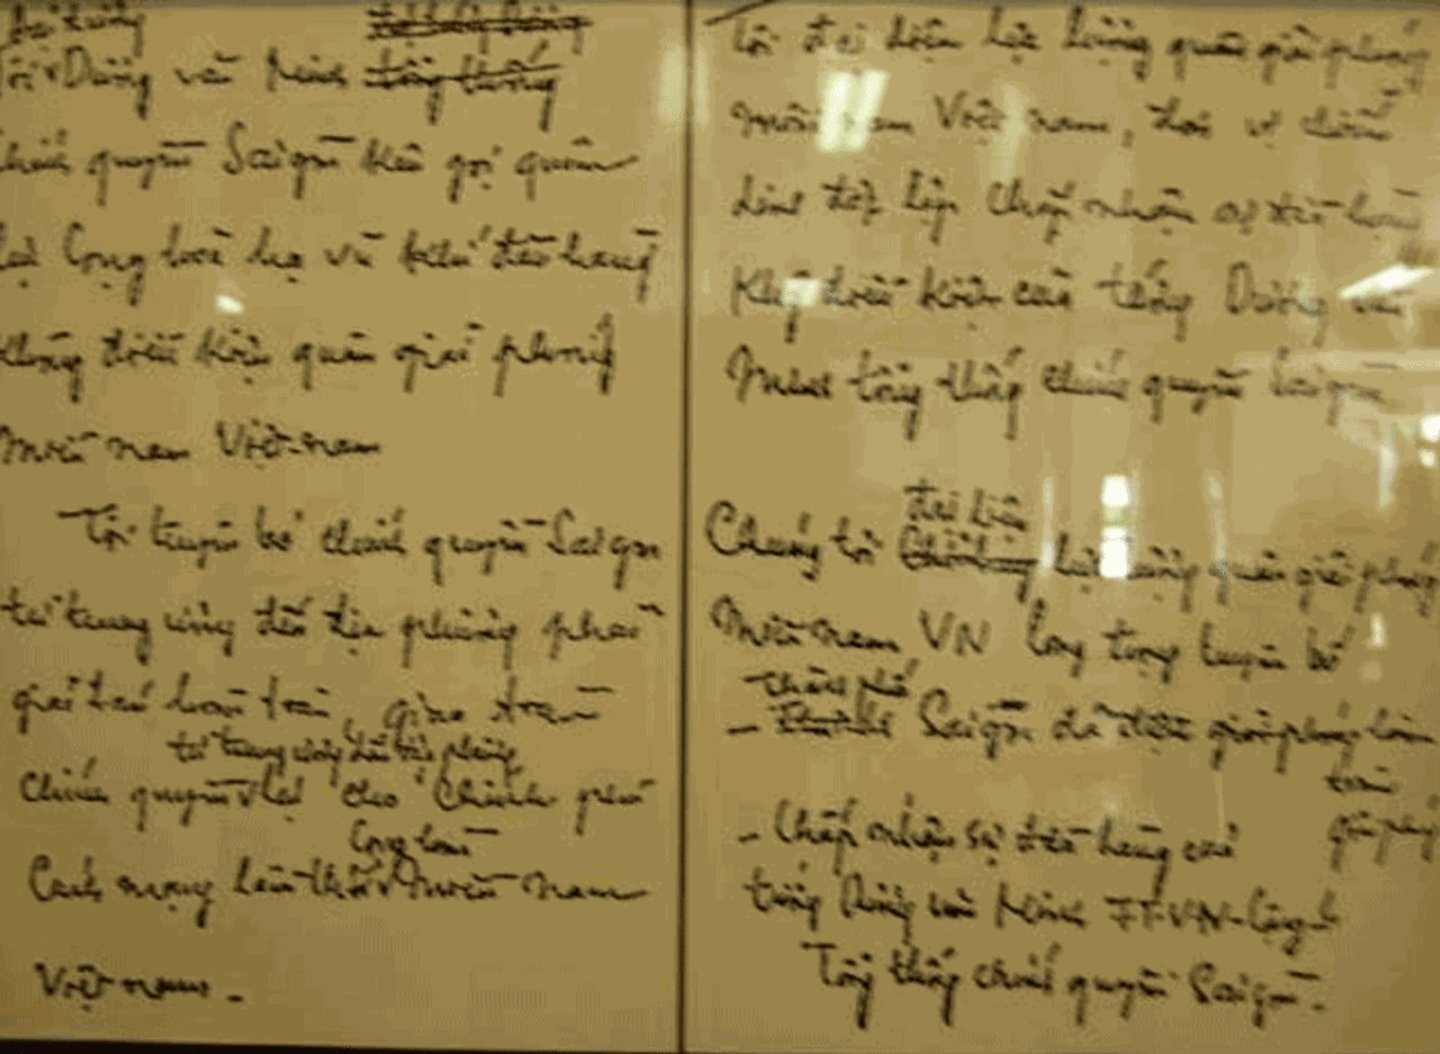 đại tướng
Tôi Dương văn Minh tổng thống
chính quyền Saigon kêu gọi quân
lực Cộng hoà hạ vũ khí đầu hàng
không điều kiện quân giải phóng
miền nam Việt-nam
Tôi tuyên bố chính quyền Saigon
từ trung ương đến địa phương phải
giải tán hoàn toàn, giao toàn
từ trung ương đến địa phương
chính quyền lại cho Chính phủ
Cộng hoà
Cách mạng lâm thời miền nam
Việt nam.
tôi đại diện lực lượng quân giải phóng
miền nam Việt nam,
chấp nhận sự đầu hàng
không điều kiện của tướng Dương văn
Minh tổng thống chính quyền Saigon
đại diện
Chúng tôi lực lượng quân giải phóng
miền nam VN long trọng tuyên bố
thành phố
- Saigon đã được giải phóng hoàn
toàn
giải phóng
- Chấp nhận sự đầu hàng của
tướng Dương văn Minh
Tổng thống chính quyền Saigon.